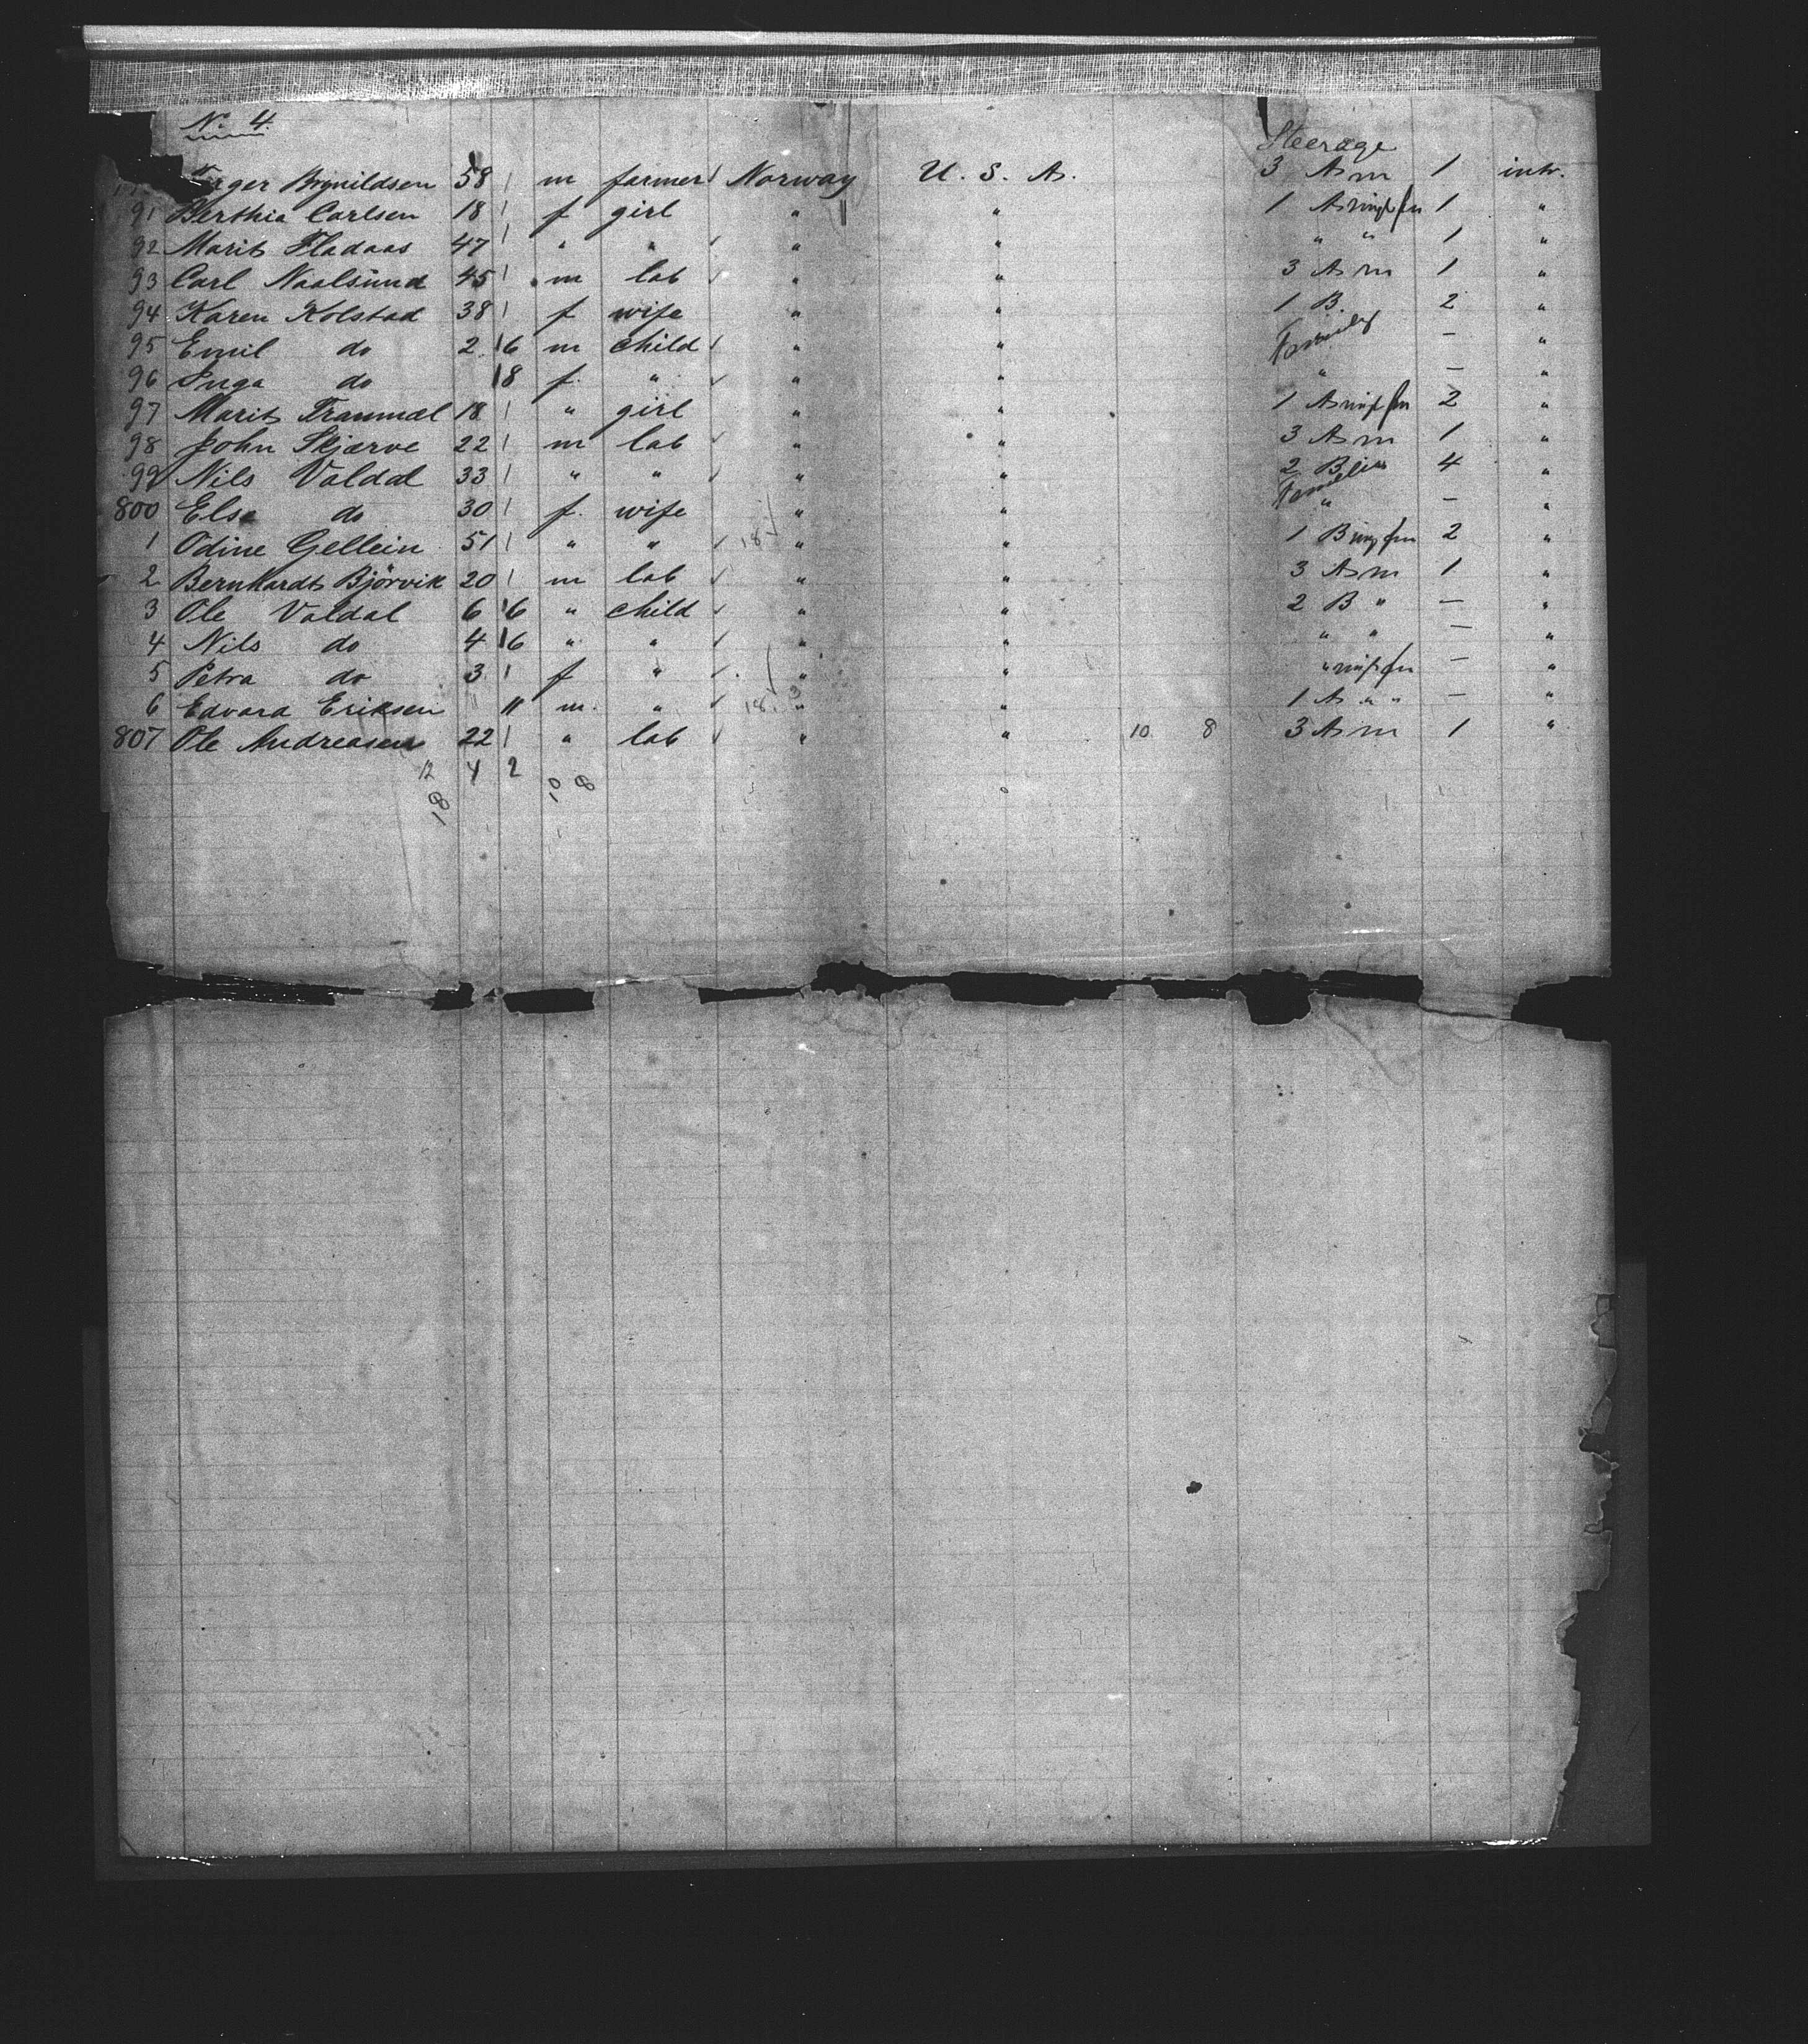 No. 4.
Steerage
Brynildsen 58 1 m farmer Norway U. S. A. 3 As m 1 intr.
91 Berthia Carlsen 18 1 f girl " " 1 As fm 1 "
92 Marit Fladaas 47 1 " " " " " " 1 "
93 Carl Naalsund 45 1 m lab " " 3 As m 1 "
94 Karen Kolstad 38 1 f wife " " 1 B. 2 "
95 Emil do 2 6 m child " " Family — "
96 Inga do 8 f. " " " " — "
97 Marit Tranmæl 18 1 " girl " " 1 As fm 2 "
98 John Skjærve 22 1 m lab " " 3 As m 1 "
99 Nils Valdal 33 1 " " " " 2 B 4 "
800 Else do 30 1 f. wife " " Families " — "
1 Odine Gellein 51 1 " " 18 " " 1 B fm 2 "
2 Bernhardt Björvik 20 1 m lab " " 3 As m 1 "
3 Ole Valdal 6 6 " child " " 2 B " — "
4 Nils do 4 6 " " " " " " — "
5 Petra do 3 1 f " " " " fm — "
6 Edvard Eriksen 11 m. " 18. 3 " " 1 As " " — "
807 Ole Andreasen 22 1 " lab " " 10 8 3 As m 1 "
12 4 2 10 8
18